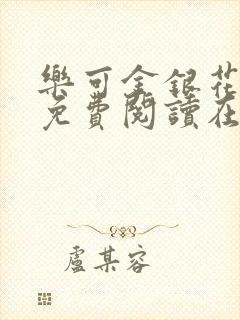 樂可金銀花
免費閱讀在
盧某容